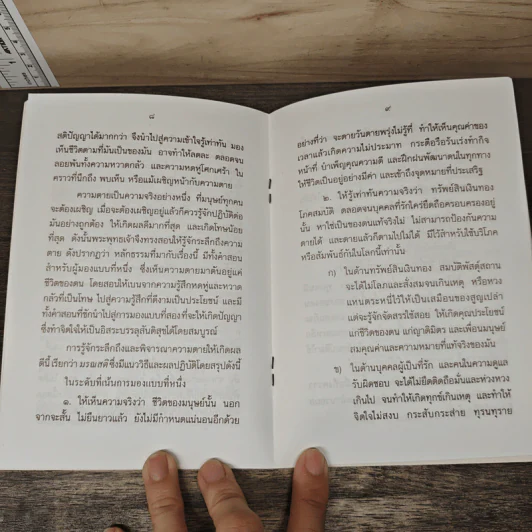 ๘
สติปัญญาได้มากกว่า จึงนำไปสู่ความเข้าใจรู้เท่าทัน มอง
เห็นชีวิตตามที่มันเป็นของมัน อาจทำให้ลดละ ตลอดจน
ลอยพ้นทั้งความหวาดกลัว และความหดหู่โศกเศร้า ใน
คราวที่นึกถึง พบเห็น หรือแม้เผชิญหน้ากับความตาย
ความตายเป็นความจริงอย่างหนึ่ง ที่มนุษย์ทุกคน
จะต้องเผชิญ เมื่อจะต้องเผชิญอยู่แล้วก็ควรรู้จักปฏิบัติต่อ
มันอย่างถูกต้อง ให้เกิดผลดีมากที่สุด และเกิดโทษน้อย
ที่สุด ดังนั้นพระพุทธเจ้าจึงทรงสอนให้รู้จักระลึกถึงความ
ตาย ดังปรากฏว่า หลักธรรมที่มากับเรื่องนี้ มีทั้งคำสอน
สำหรับผู้มองแบบที่หนึ่ง ซึ่งเห็นความตายมาตัดรอนแค่
ชีวิตของตน โดยสอนให้เบนจากความรู้สึกหดหู่และหวาด
กลัวที่เป็นโทษ ไปสู่ความรู้สึกที่ดีงามเป็นประโยชน์ และมี
ทั้งคำสอนที่ชักนำไปสู่การมองแบบที่สองที่จะให้เกิดปัญญา
ซึ่งทำจิตใจให้เป็นอิสระบรรลุสันติสุขได้โดยสมบูรณ์
การรู้จักระลึกถึงและพิจารณาความตายให้เกิดผล
ดีนี้ เรียกว่า มรณสติ ซึ่งมีแนววิธีและผลปฏิบัติโดยสรุปดังนี้
ในระดับที่เน้นการมองแบบที่หนึ่ง
๑. ให้เห็นความจริงว่า ชีวิตของมนุษย์นั้น นอก
จากจะสั้น ไม่ยืนยาวแล้ว ยังไม่มีกำหนดแน่นอนอีกด้วย
๙
อย่างที่ว่า จะตายวันตายพรุ่งไม่รู้ที่ ทำให้เห็นคุณค่าของ
เวลาแล้วเกิดความไม่ประมาท กระตือรือร้นเร่งทำกิจ
หน้าที่ บำเพ็ญคุณความดี และฝึกฝนพัฒนาตนในทุกทาง
ให้ชีวิตเป็นอยู่อย่างมีค่า และเข้าถึงจุดหมายที่ประเสริฐ
๒. ให้รู้เท่าทันความจริงว่า ทรัพย์สินเงินทอง
โภคสมบัติ ตลอดจนบุคคลที่รักใคร่ยึดถือครอบครองอยู่
นั้น หาใช่เป็นของตนแท้จริงไม่ ไม่สามารถป้องกันความ
ตายได้ และตายแล้วก็ตามไปไม่ได้ มีไว้สำหรับใช้บริโภค
หรือสัมพันธ์กันในโลกนี้เท่านั้น
ก) ในด้านทรัพย์สินเงินทอง สมบัติพัสดุ์สถาน
จะได้ไม่โลภและสั่งสมจนเกินเหตุ หรือหวง
แหนตระหนี่ไว้ให้เป็นเสมือนของสูญเปล่า
แต่จะรู้จักจัดสรรใช้สอย ให้เกิดคุณประโยชน์
แก่ชีวิตของตน แก่ญาติมิตร และเพื่อนมนุษย์
สมคุณค่าและความหมายที่แท้จริงของมัน
ข) ในด้านบุคคลผู้เป็นที่รัก และคนในความดูแล
รับผิดชอบ จะได้ไม่ยึดติดถือมั่นและห่วงหวง
เกินไป จนทำให้เกิดทุกข์เกินเหตุ และทำให้
จิตใจไม่สงบ กระสับกระส่าย ทุรนทุราย